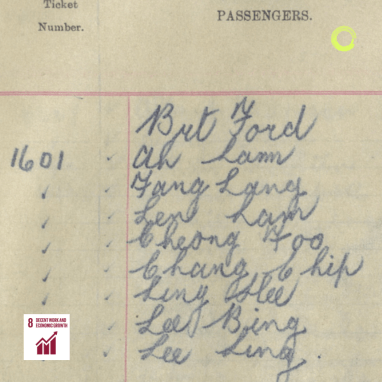 Ticket
Number.
PASSENGERS.
Brt Ford
1601 ✓ Ah Lamm
✓ ✓ Fang Lang
✓ ✓ Len Lam
✓ ✓ Cheong Foo
✓ ✓ Chang Chip
✓ ✓ Ling Hee
✓ Lee Bing
✓ Lee Ling.
8 DECENT WORK AND
ECONOMIC GROWTH